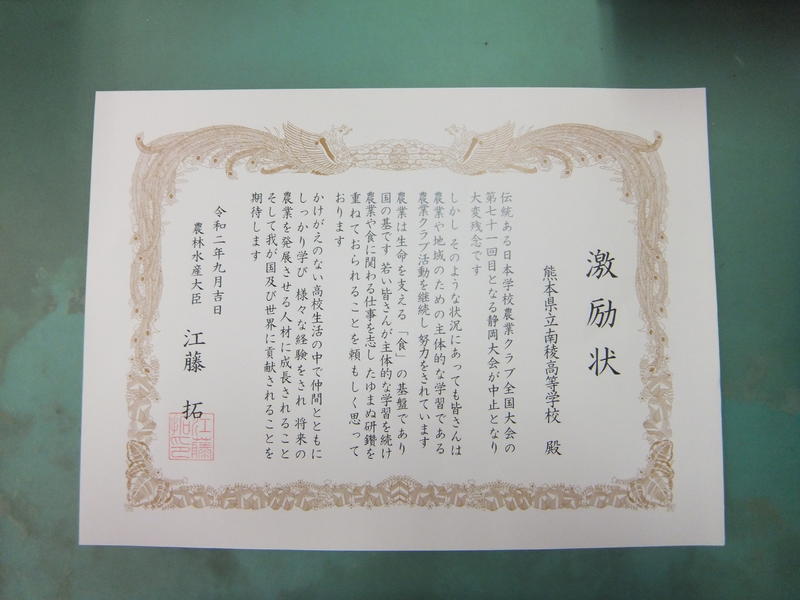 激励状
熊本県立南稜高等学校　殿
伝統ある日本学校農業クラブ全国大会の
第七十一回目となる静岡大会が中止となり
大変残念です
しかし　そのような状況にあっても皆さんは
農業や地域のための主体的な学習である
農業クラブ活動を継続し　努力をされています
農業は生命を支える「食」の基盤であり
国の基です　若い皆さんが主体的な学習を続け
農業や食に関わる仕事を志し　たゆまぬ研鑽を
重ねておられることを頼もしく思って
おります
かけがえのない高校生活の中で仲間とともに
しっかり学び　様々な経験をされ　将来の
農業を発展させる人材に成長されること
そして我が国及び世界に貢献されることを
期待します
令和二年九月吉日
農林水産大臣　江藤　拓
江藤
拓印